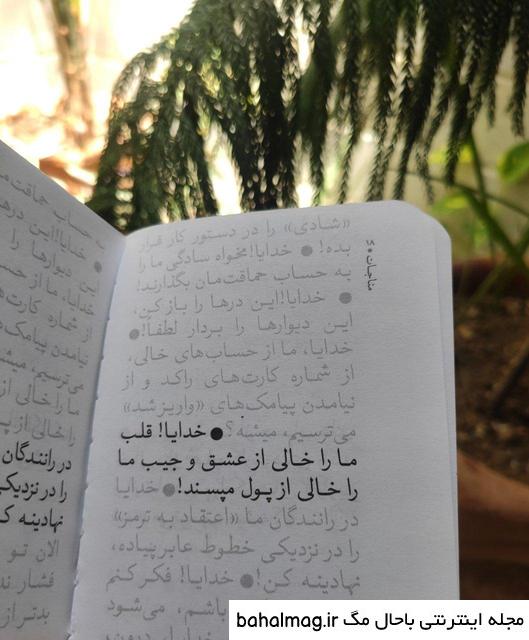 «شادی» را در دستور کار قرار
بده! ● خدایا! مخواه سادگی ما را
به حساب حماقت‌مان بگذارند!
● خدایا! این درها را باز کن،
این دیوارها را بردار لطفا! ●
خدایا، ما از حساب‌های خالی،
از شماره کارت‌های راکد و از
نیامدن پیامک‌های «واریز شد»
می‌ترسیم، میشه؟ ● خدایا! قلب
ما را خالی از عشق و جیب ما
را خالی از پول مپسند! ● خدایا
در رانندگان ما «اعتقاد به ترمز»
را در نزدیکی خطوط عابر پیاده،
نهادینه کن! ● خدایا! فکر کنم
باشم، می‌شود
مناجات ● ۵
حساب حماقت‌
● خدایا! این درها
این دیوارها را
خدایا، ما از حسا
از شماره کارت‌ه
نیامدن پیامک‌ها
می‌ترسیم، میشه
ما را خالی از
را خالی از پو
در رانندگان
را در نزدیکی
نهادینه ک
الان تو
فشار ند
بدتر از
مجله اینترنتی باحال مگ bahalmag.ir